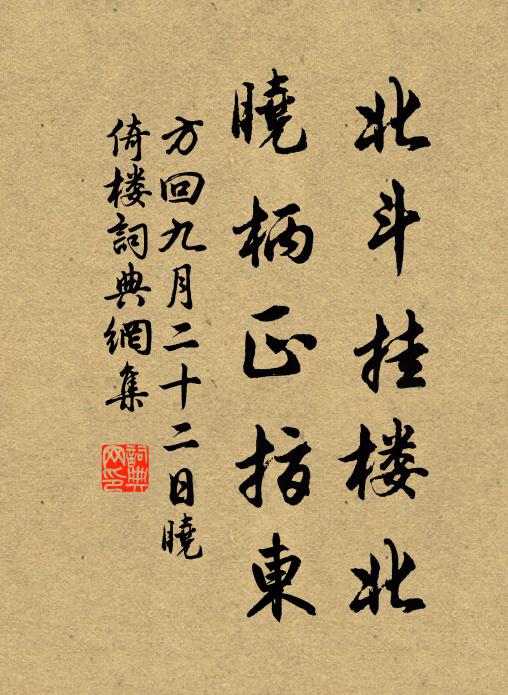 北斗挂楼北
曉柄正指東
方回九月二十二日曉
倚楼詞典網集
詞典网印